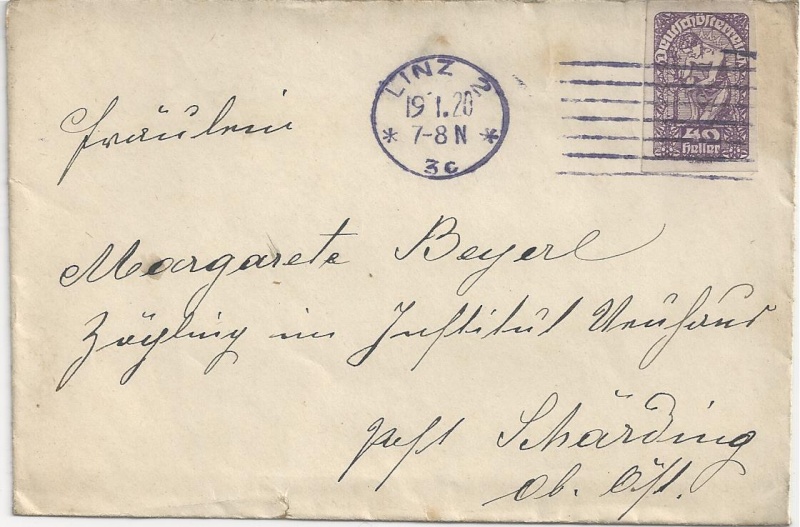 LINZ 2
19 1.20
* 7-8 N *
3c
Deutschösterreich
40
Heller
Fräulein
Margarete Beyerl
Zögling im Institut Neuhaus
Post Schärding
ob. Öst.